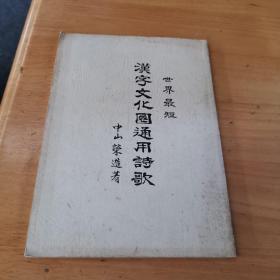 世界最短
漢字文化圈通用詩歌
中山榮造著